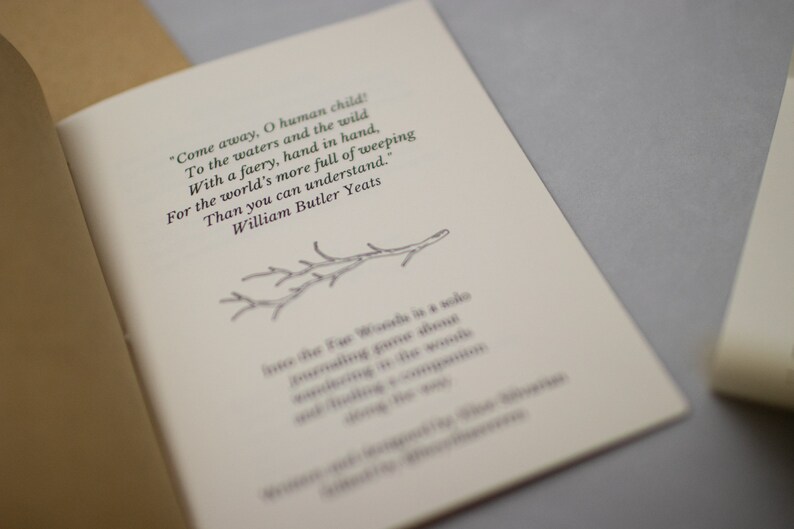 "Come away, O human child!
To the waters and the wild
With a faery, hand in hand,
For the world's more full of weeping
Than you can understand."
William Butler Yeats
Into the Far Woods is a solo
journaling game about
wandering in the woods
and finding a companion
along the way.
Written and designed by Elliot
Edited by